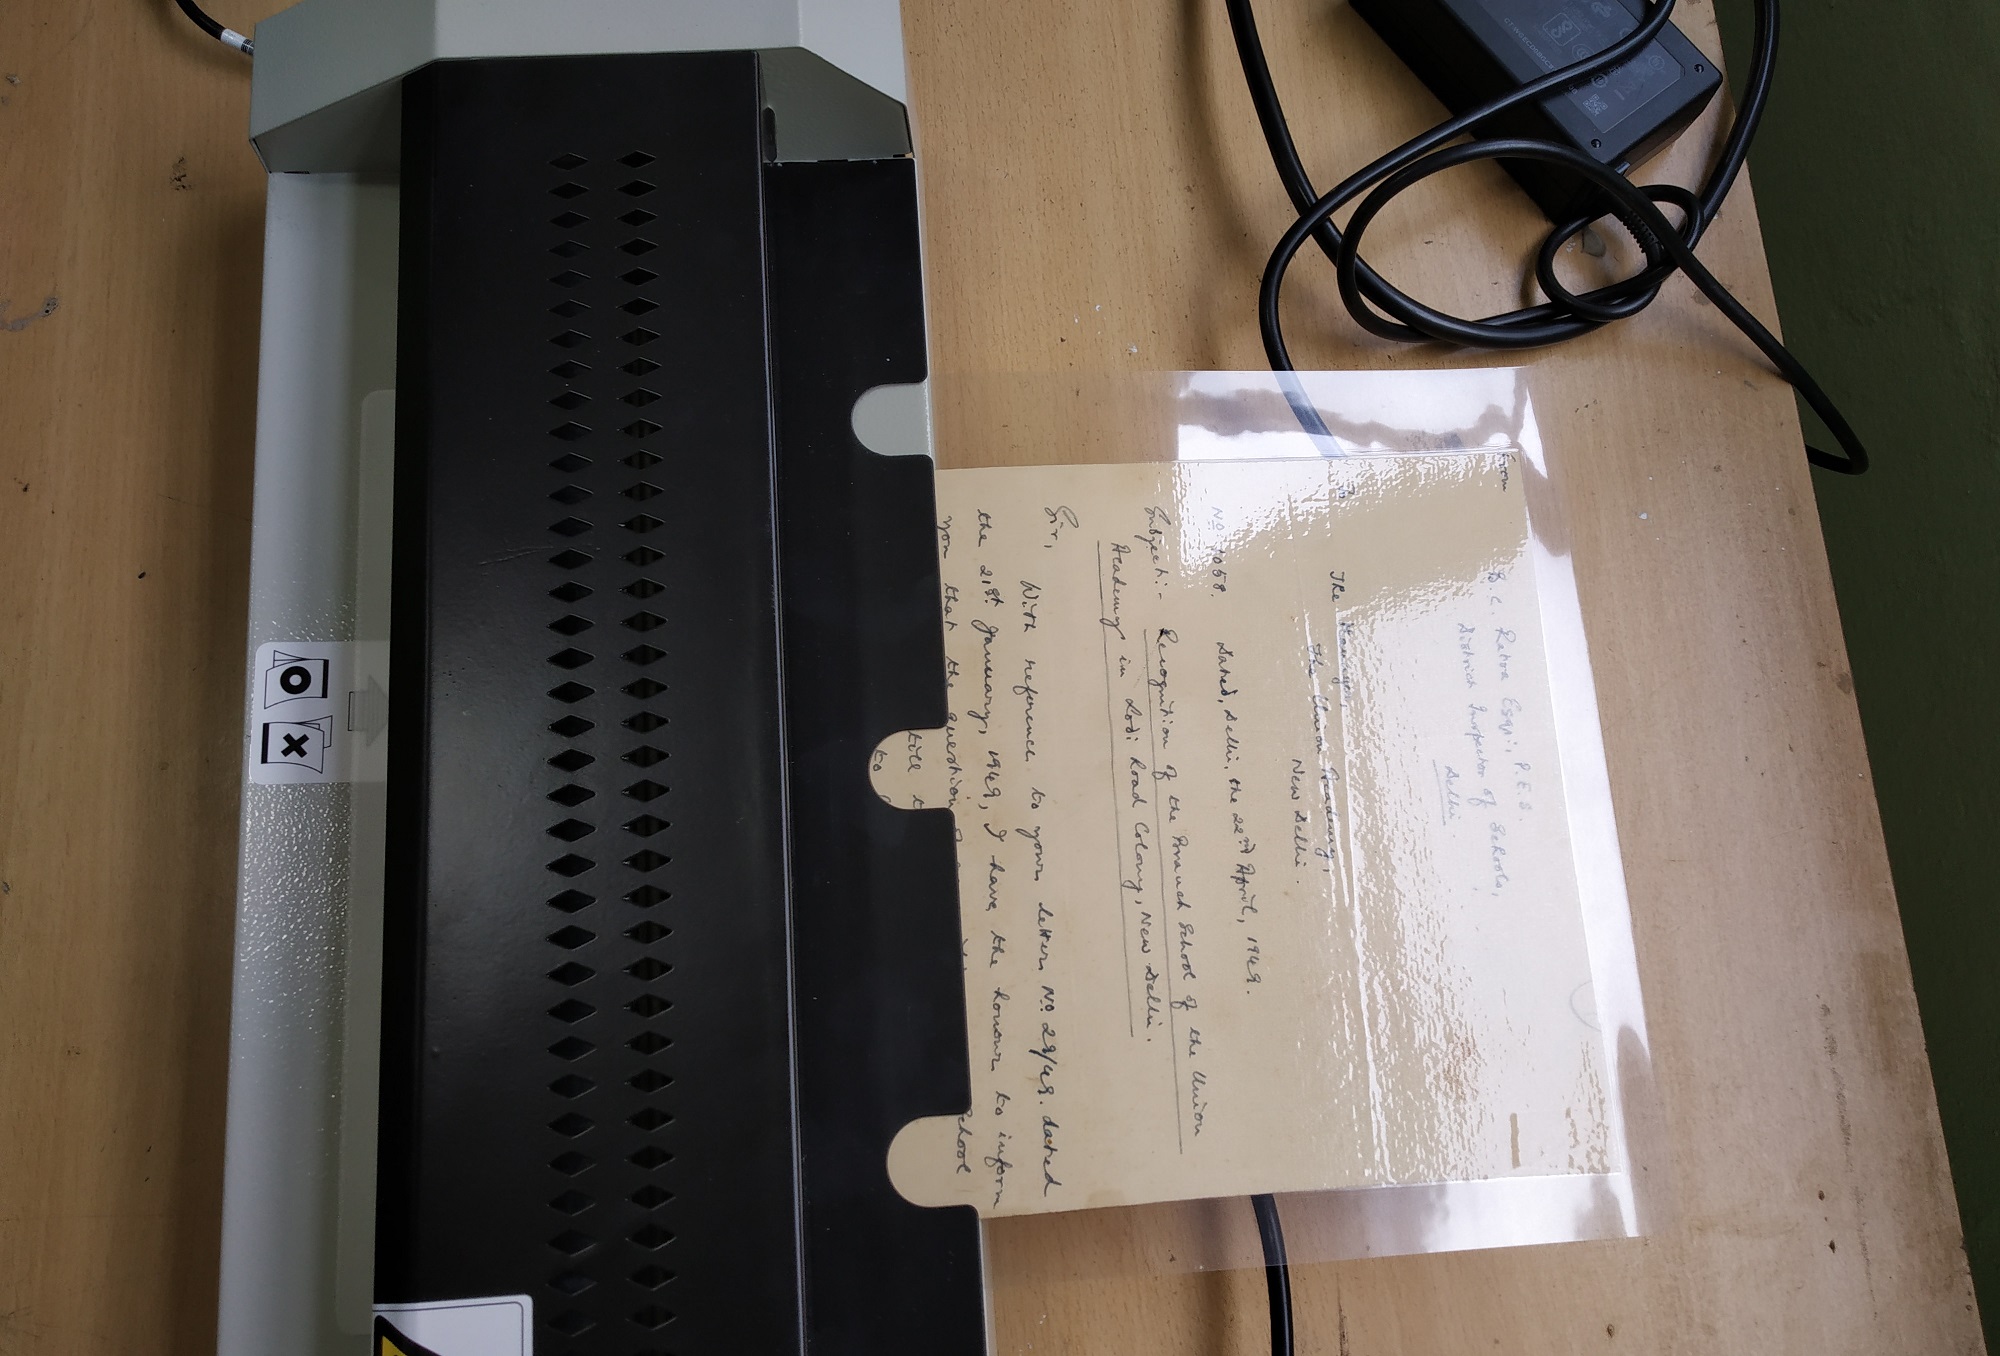 From
B.C. Rahra Esqr., P.E.S.
District Inspector of Schools,
Delhi.
To
The Manager,
The Union Academy,
New Delhi.
No. 1058. Dated, Delhi, the 22nd April, 1949.
Subject:- Recognition of the Branch School of the Union
Academy in Lodi Road Colony, New Delhi.
Sir,
With reference to your letters No. 29/49. dated
the 21st January, 1949, I have the honour to inform
you that the question
School
till
to